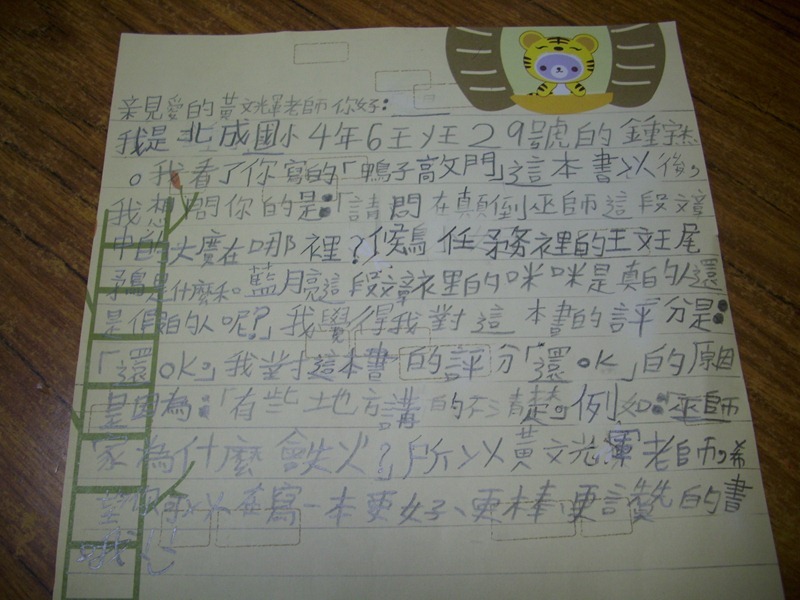 亲見愛的黃文輝老師你好:
我是北成國小4年6王妵29號的鍾
。我看了你寫的「鴨子敲門」這本書以後,
我想問你的是:「請問在顛倒巫師這段文章
中的大廈在哪裡?候鳥任務裡的王文尾
鳥是什麼和藍月亮這段文章裡的咪咪是真的人還
是假的人呢?」我覺得我對這本書的評分是:
「還OK」我對這本書的評分「還OK」的原因
是因為:「有些地方講的不清楚。例如:巫師
家為什麼會失火?」所以黃文輝老師,希
望你可以在寫一本更好、更棒、更讚的書
哦!